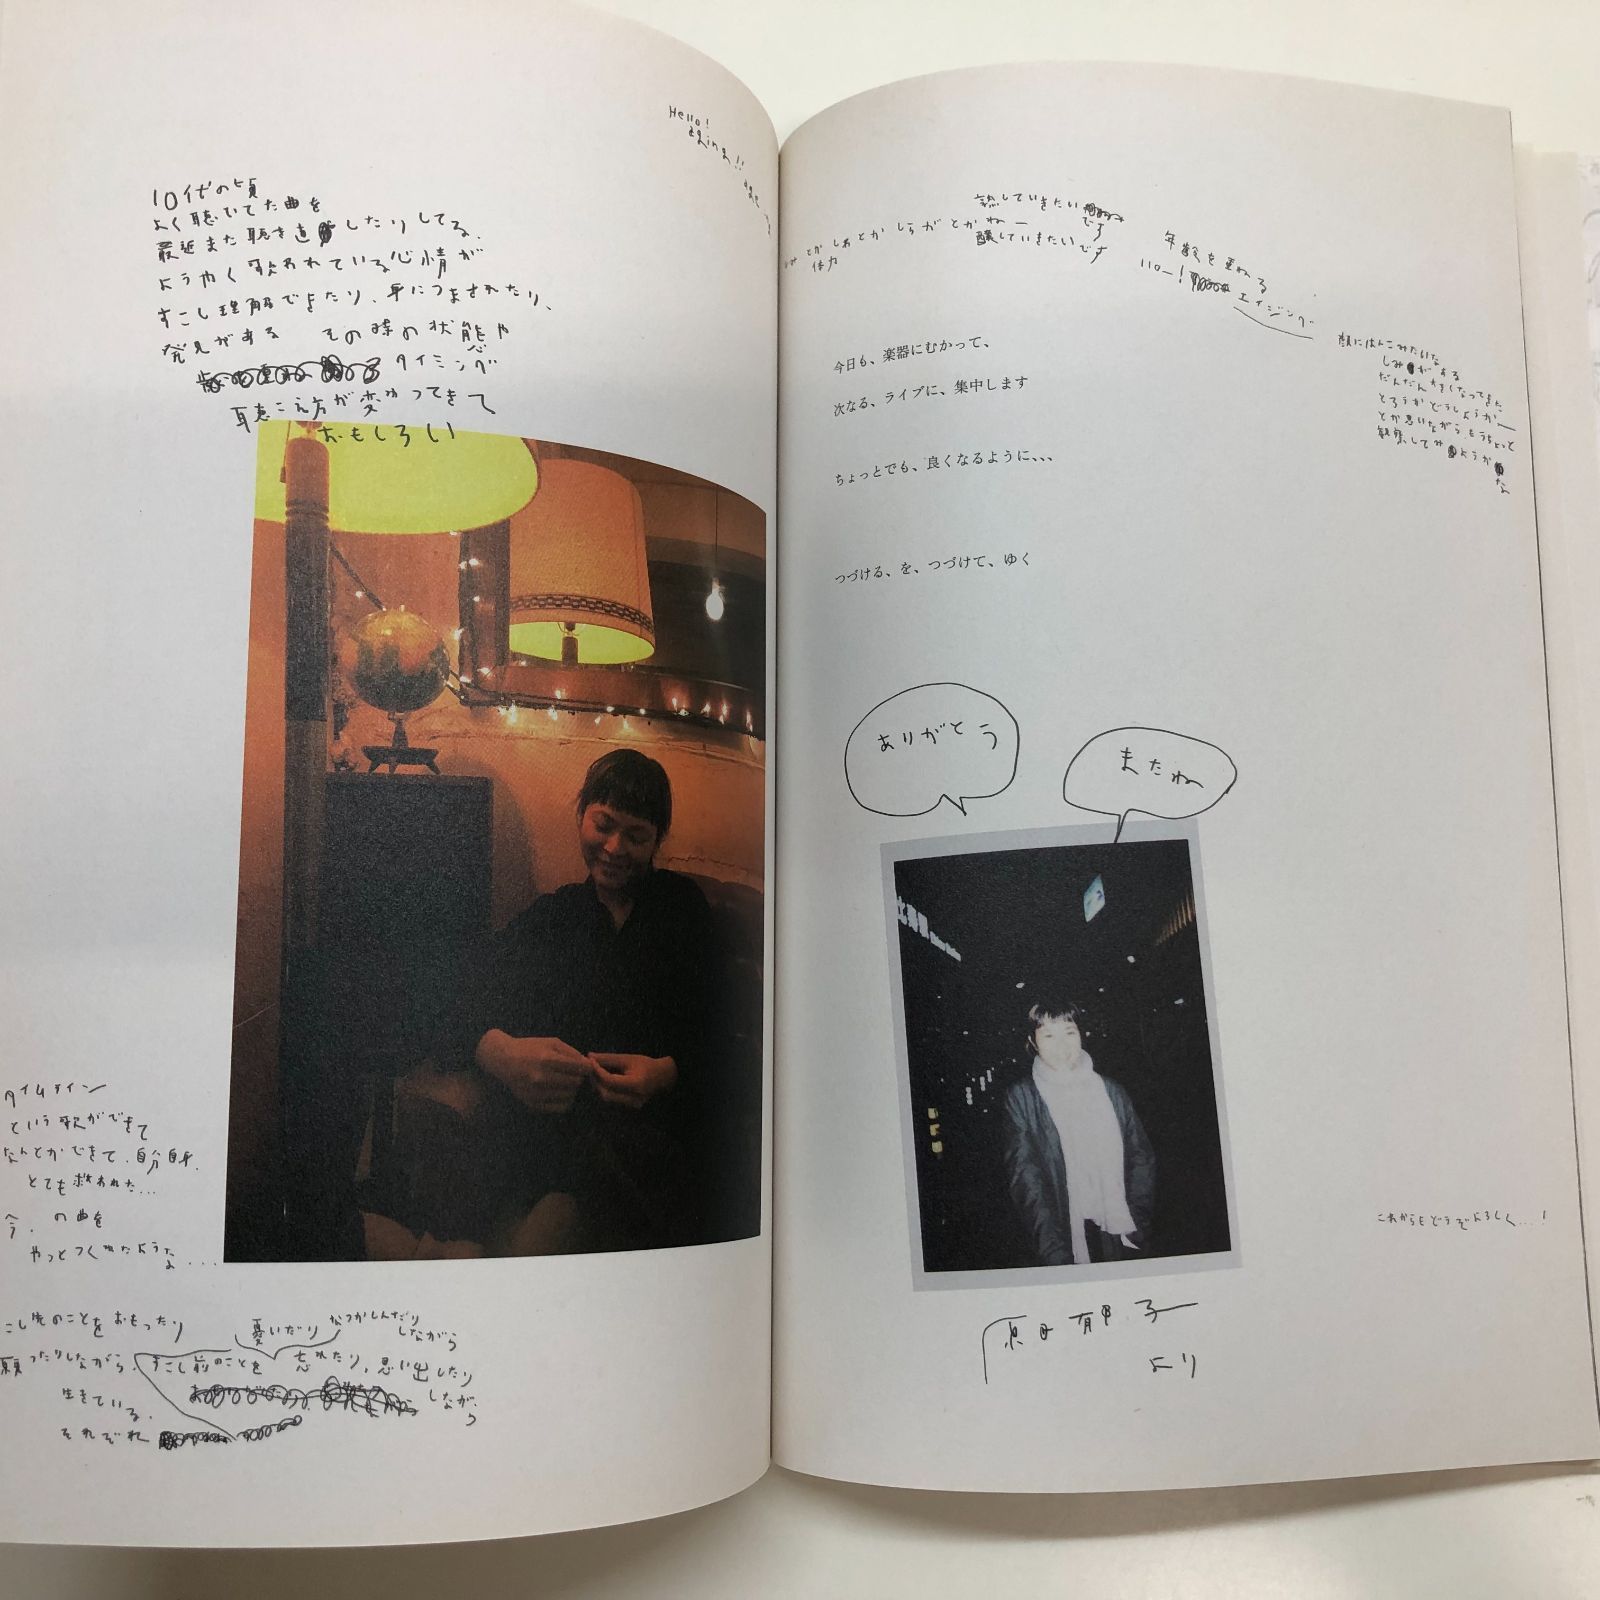 Hello!
aging!!
10代の頃
よく聴いてた曲を
最近また聴き直したりしてる.
ようやく歌われている心情が
すこし理解できたり、身につまされたり、
発見がある その時の状態や
タイミング
聴こえ方が変わってきて
おもしろい
タイムライン
という歌ができて
なんとかできて、自分自身、
とても救われた...
今、の曲を
やっとつくれたような...
こし先のことをおもったり
憂いだり なつかしんだり
しながら
願ったりしながら、すこし前のことを 忘れたり、思い出したり
しながら
生きている.
それぞれ
熟していきたい
です
しみとかしわとかしらがとかねー
体力
醸していきたいです
年齢を重ねる
ハロー!エイジング
顔にはんこみたいな
しみがある
だんだん大きくなってきた
とろうかどうしようかー
とか思いながら、もうちょっと
観察してみようかな
今日も、楽器にむかって、
次なる、ライブに、集中します
ちょっとでも、良くなるように、、、
つづける、を、つづけて、ゆく
ありがとう
またね
これからもどうぞよろしく...!
原田郁子
より